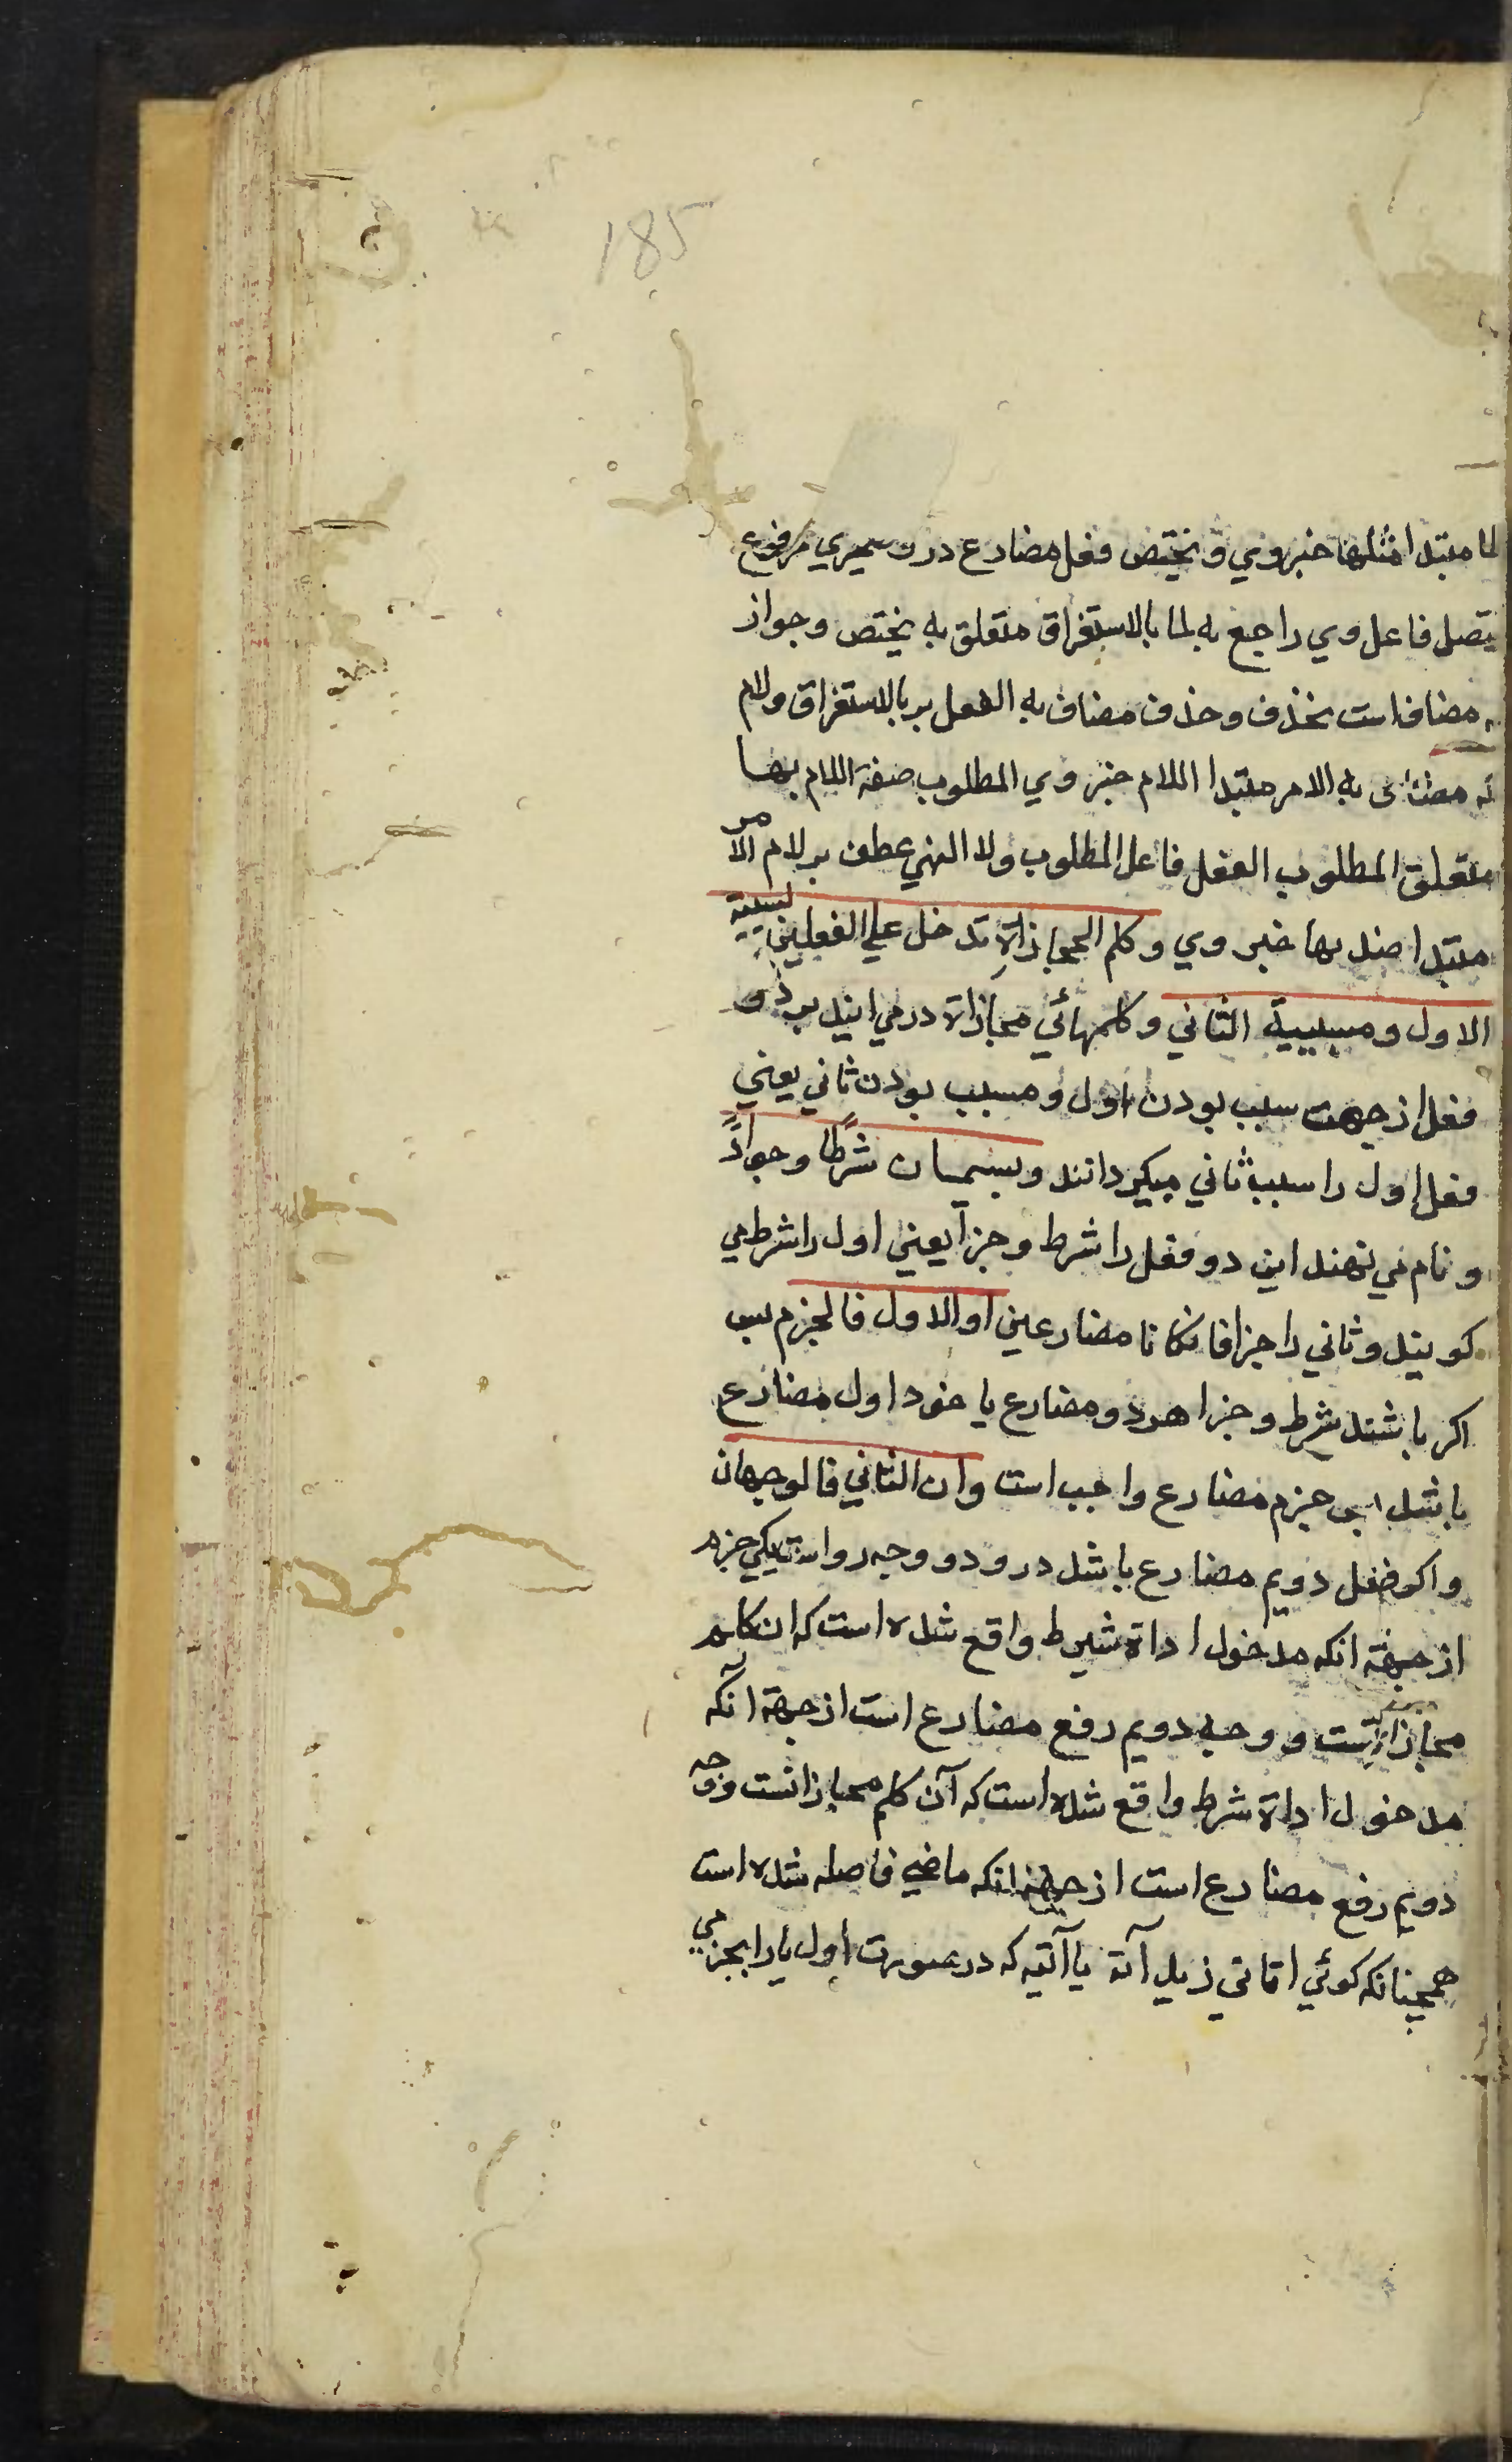 185
لما مبتدا مثلها خبر وي و يختص فعل مضارع درو ضميري مرفوع
متصل فاعل وي راجع به لما بالاستغراق متعلق به يختص وجواز
مضاف است بحذف وحذف مضاف به الفعل بر بالاستغراق ولام
به الامر مبتدا اللام خبر وي المطلوب صفة اللام بها
متعلق المطلوب الفعل فاعل المطلوب ولا النهي عطف بر لام الامر
مبتدا ضد بها خبر وي وكلم المجازاة تدخل علي الفعلين لسببية
الاول ومسببية الثاني وكلمهائي مجازاة درمي ايند بر دو
فعل از جهت سبب بودن اول ومسبب بودن ثاني يعني
فعل اول را سبب ثاني ميكردانند ويسميان شرطا وجزاءً
و نام مي نهند اين دو فعل را شرط و جزا يعني اول را شرط مي
كويند وثاني را جزا فان كانا مضارعين او الاول فالجزم پس
اكر باشند شرط وجزا هردو مضارع يا خود اول مضارع
باشد پس جزم مضارع واجب است وان الثاني فالوجهان
واكر فعل دويم مضارع باشد درو دو وجه رواست يكي جزم
از جهة انكه مدخول اداة شرط واقع شده است كه ان كلم
مجازاتست و وجه دويم رفع مضارع است از جهة آنكه
مدخول اداة شرط واقع شده است كه آن كلم مجازاتست ووجه
دويم رفع مضارع است از جهة انكه ماضي فاصله شده است
همچنانكه كوئي اتاني زيد آته يا آتيه كه در صورت اول يا را بجزمي